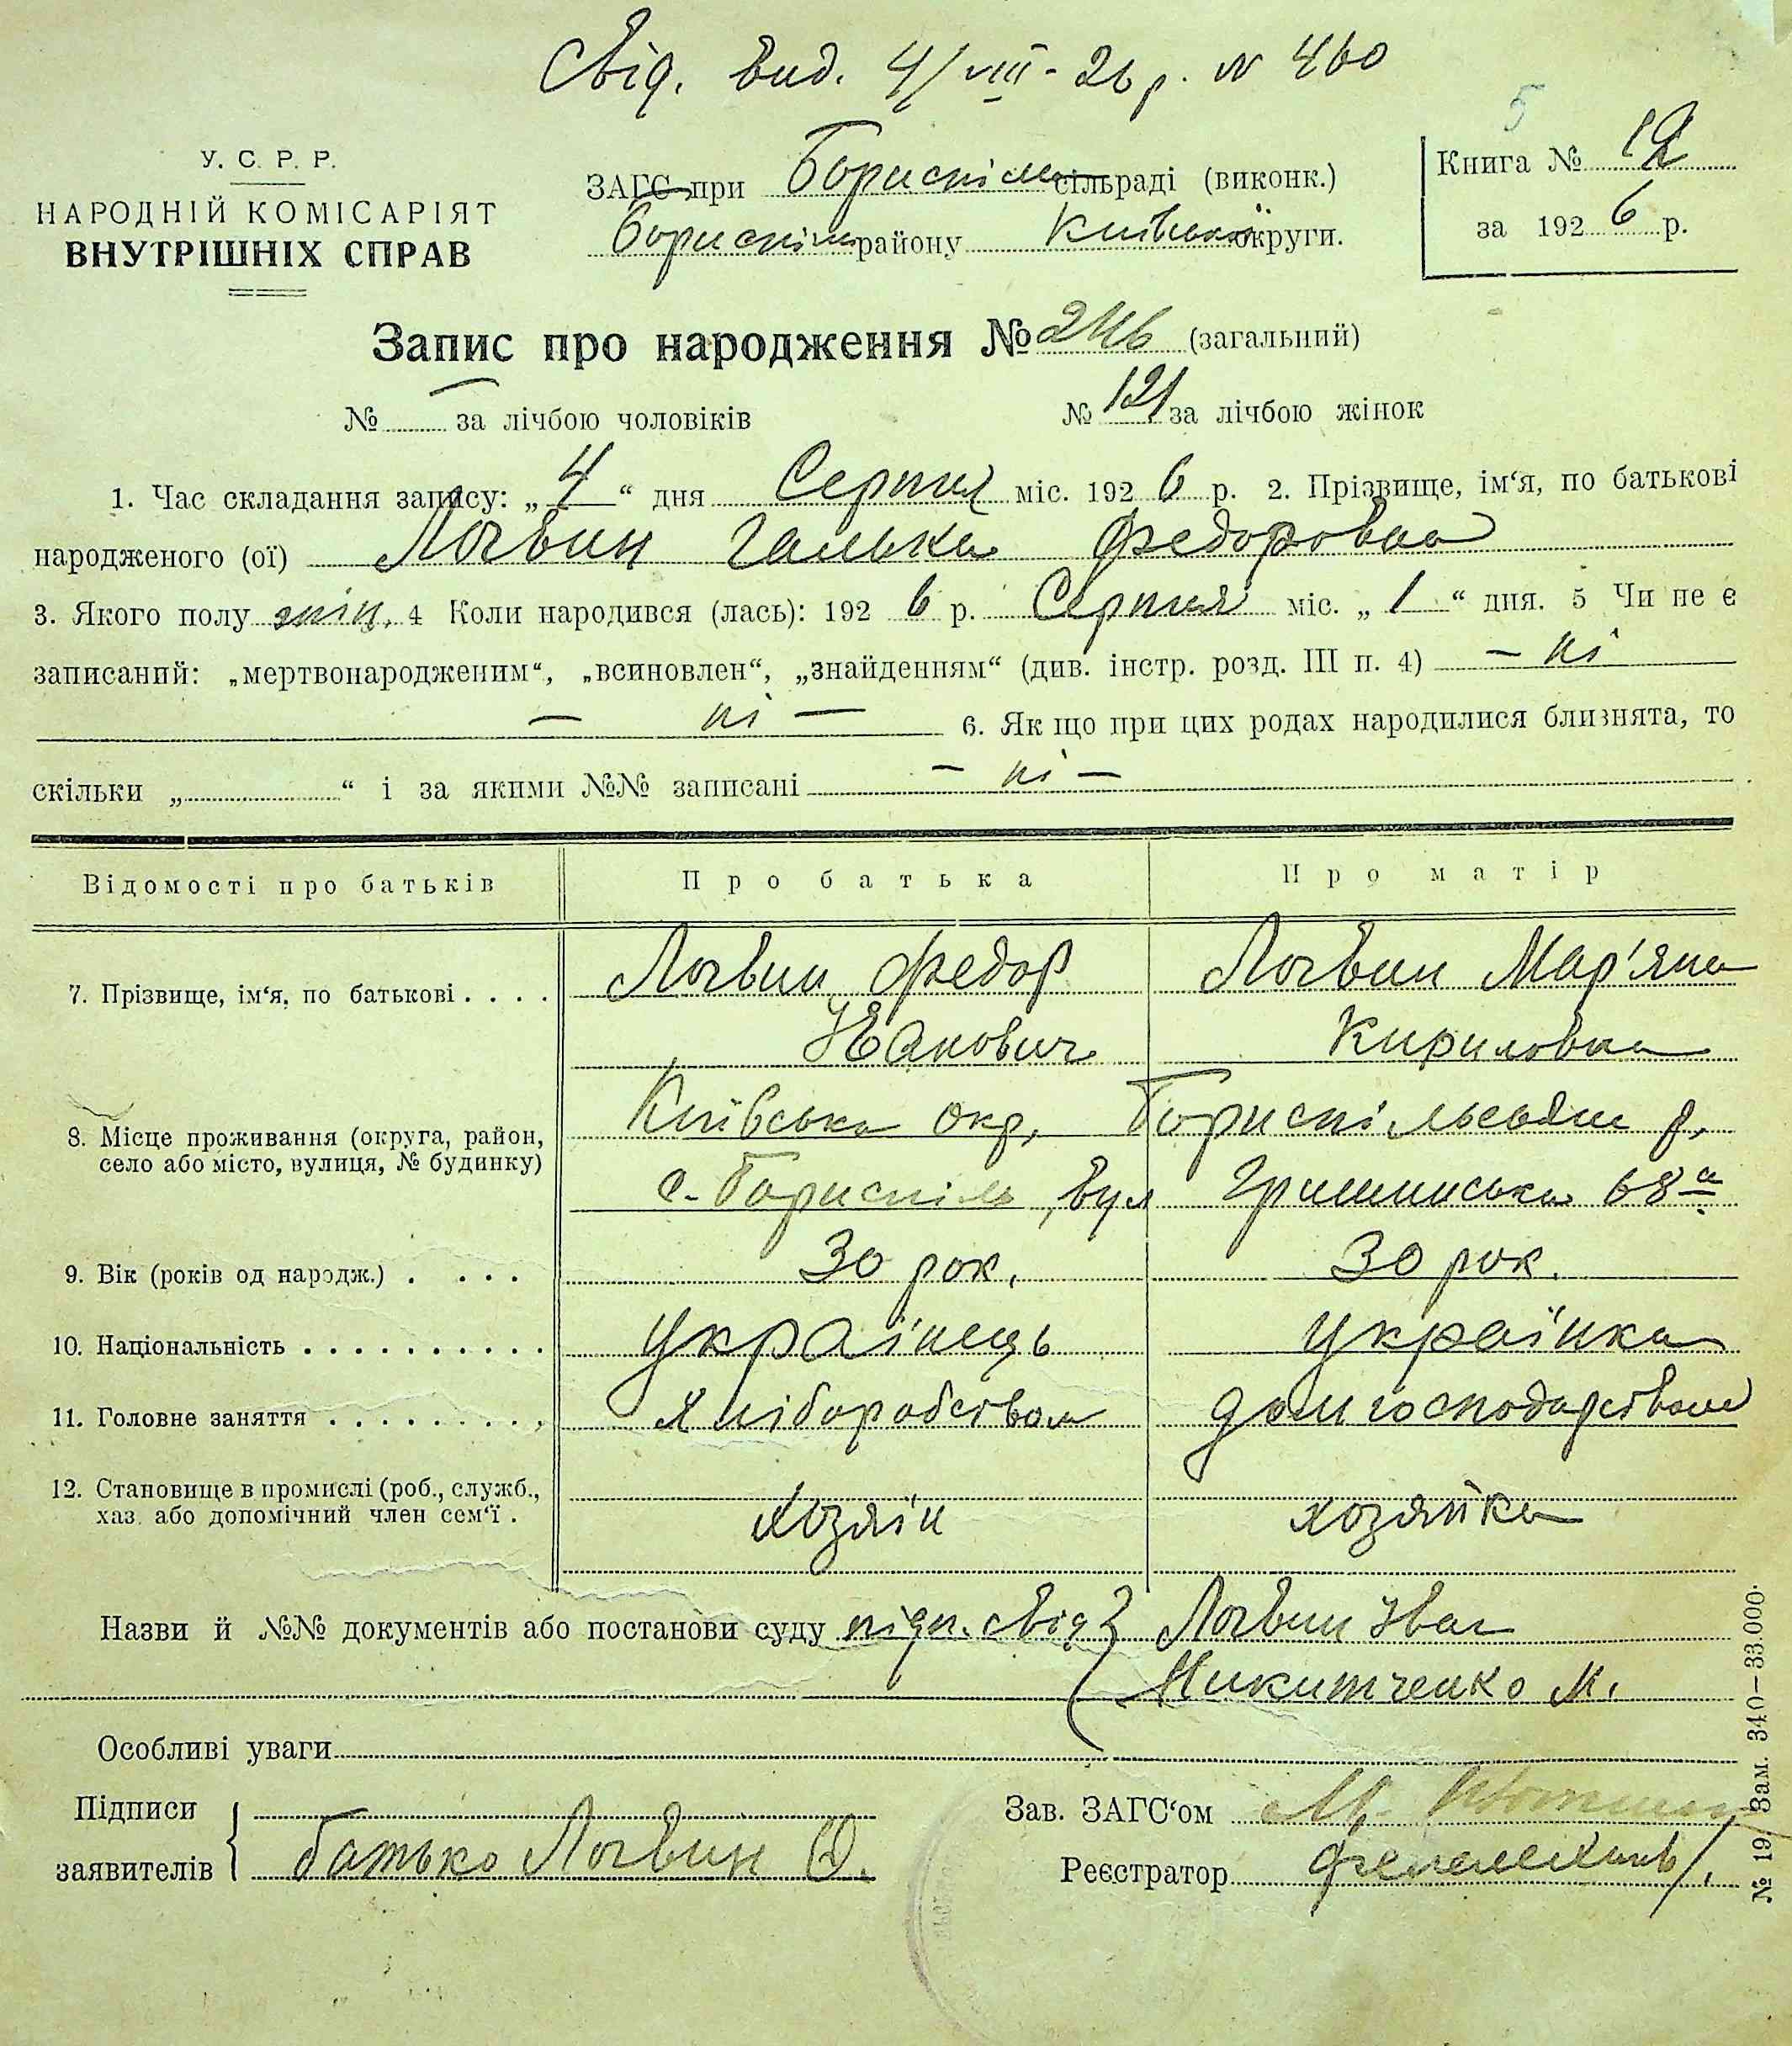 Свід. вид. 4/VIII-26 р. N 460
5
У. С. Р. Р.
НАРОДНІЙ КОМІСАРІЯТ
ВНУТРІШНІХ СПРАВ
ЗАГС при Бориспільській сільраді (виконк.)
Бориспільськ району Київської округи.
Книга № 12
за 1926 р.
Запис про народження № 246 (загальний)
№ — за лічбою чоловіків
№ 121 за лічбою жінок
1. Час складання запису: „4“ дня Серпня міс. 1926 р. 2. Прізвище, ім‘я, по батькові
народженого (ої) Логвин Галька Федоровна
3. Якого полу жін. 4 Коли народився (лась): 1926 р. Серпня міс. „1“ дня. 5 Чи не є
записаний: „мертвонародженим“, „всиновлен“, „знайденням“ (див. інстр. розд. III п. 4) — ні
— ні — 6. Як що при цих родах народилися близнята, то
скільки „ “ і за якими №№ записані — ні —
Відомості про батьків Про батька Про матір
7. Прізвище, ім‘я, по батькові . . . . Логвин Федор Логвин Мар'яна
Іванович Кириловна
8. Місце проживання (округа, район, Київська окр. Бориспільський р.
село або місто, вулиця, № будинку) с. Бориспіль, вул 68а
9. Вік (років од народж.) . . . . 30 рок. 30 рок.
10. Національність . . . . . . . . . . українець українка
11. Головне заняття . . . . . . . . . . хліборобством дом господарством
12. Становище в промислі (роб., служб.,
хаз. або допомічний член сем‘ї . хозяїн хозяйка
Назви й №№ документів або постанови суду підп. свід. Логвин Іван
Никитченко М.
Особливі уваги
Підписи
заявителів батько Логвин Ф.
Зав. ЗАГС‘ом
Реєстратор
№ 19 Зам. 340—33.000.